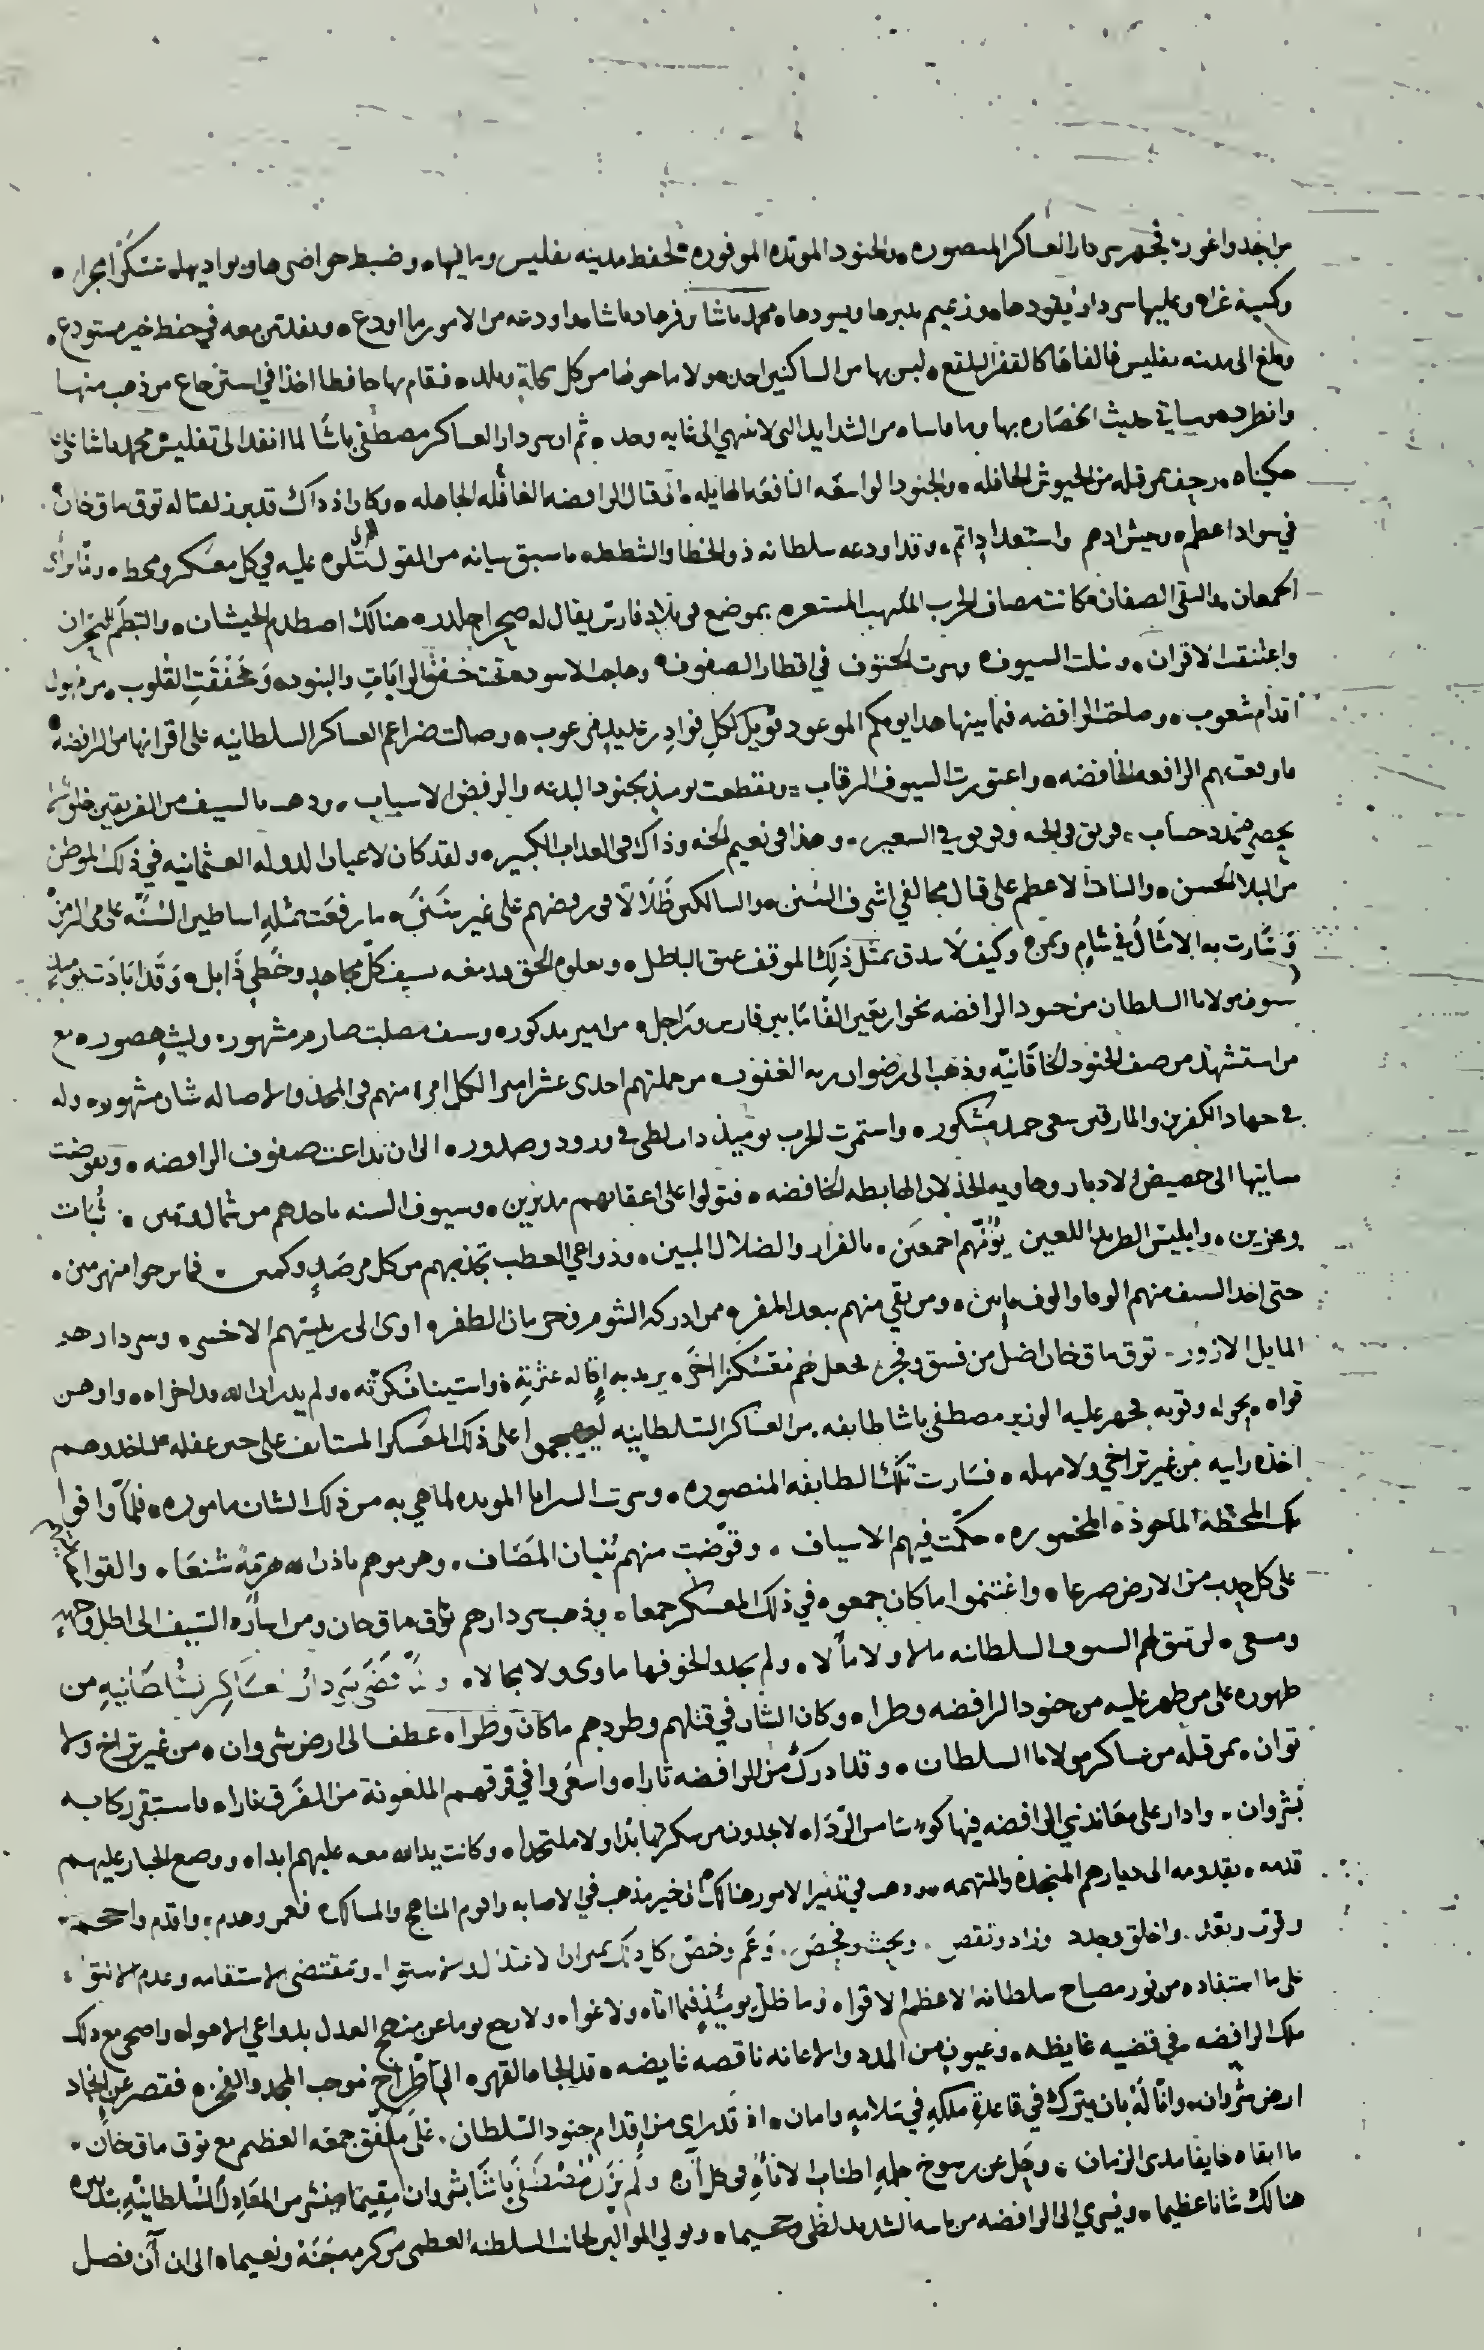 من انجد واغور فجهز سردار العساكر المنصوره والجنود الموتده الموفوره لحفظ مدينه تفليس وما اليها وضبط حواضرها وبواديها عسكرا جرارا
وكتيبة غرا وعليها سردار يقودها وزعيم يدبرها ويسودها محمد باشا وفرهاد باشا مداودعه من الامور ما اودع ونفذ من معه في حفظ خير مستودع
وبلغ الى مدينه تفليس فالفاها كالقفر البلقع ليس بها من الساكنين احد هو لا ما حوضا من كل وبلد فقام بها حافظا اخذا في استرجاع من ذهب منها
وانطرد وسياتي حديث انحصاره بها وما قاساه من الشدايد التي لا تنتهي الى غايه وحد ثم ان سردار العساكر مصطفى باشا لما انفذ الى تفليس محمد باشا على ما
حكيناه زحف بمن قبله من الجيوش الحافله والجنود الواسعه النافعه الهايله الى قتال الرافضه الغافله الجاهله وكان اذ ذاك قد برز لقتاله توق ماق خان
في سواد اعظم وجيش ادهم واستعداد اتم وقد اودعه سلطانه ذو الخطا والشطط ما سبق بيانه من القول المتلوه عليه في كل معسكر ومحط ولما تراى
الجمعان والتقى الصفان وكانت مصاف الحرب الملتهب المستعره بموضع في بلاد فارس يقال له صحرا جلدر هنالك اصطدم الجيشان والتطم البحران
واعتنقت الاقران وسلت السيوف وسرت الحتوف في اقطار الصفوف وهاجت الاسود تحت خفق الرايات والبنود وخفقت القلوب من هول
اقدام شعوب وصاحت الرافضه فيما بينها هذا يومكم الموعود فويل لكل فواد رعديد مرعوب وصالت ضراغم العساكر السلطانيه على اقرانها من الرافضه
ما وقعت بهم الرافعه الخافضه واعتورت السيوف الرقاب وتقطعت يوميذ بجنود البدعه والرفض الاسباب وذهب بالسيف من الفريقين خلق لا
يحصرهم عدد حساب فريق في الجنه وفريق في السعير وهذا في نعيم الجنه وذاك في العذاب الكبير ولقد كان لاعيان الدوله العثمانيه في ذلك الموطن
من البلا الحسن والثبات الاعظم على قتال مخالفي اشرف السنن والسالكين ظلالا في رفضهم على غير سنن ما رفعت بمثله اساطين السنه على مر الزمن
وسارت به الامثال في شام ويمن وكيف لا يدق بمثل ذلك الموقف عنق الباطل ويعلو الحق ويدمغه بسيف كل مجاهد وخطي ذابل وقد ابادت يوميذ
سيوف مولانا السلطان من جنود الرافضه نحو اربعين الفا ما بين فارس وراجل من امير مذكور وسيف مصلت صارم مشهور وليث هصور مع
من استشهد من صف الجنود الخاقانيه وذهب الى رضوان ربه الغفور من جملتهم احدى عشر اميرا لكل امر منهم في المجد والاصاله شان مشهور وله
في جهاد الكفره والمارقين سعي حميد مشكور واستمرت الحرب يوميذ دار لظى في ورود وصدور الى ان تداعت صفوف الرافضه وتقوضت
مبانيها الى حضيض الادبار وهاويه الخذلان الهابطه الخافضه فتولوا على اعقابهم مدبرين وسيوف السنه تاخذهم من شمال ويمين ثبات
وعزين وابليس الطريد اللعين يؤزهم اجمعين بالفرار والضلال المبين ودواعي العطب تجذبهم من كل مرصد وكمين فما برحوا منهزمين
حتى اخذ السيف منهم الوفا والوف مايين ومن بقي منهم بعد المفر ممن ادركه الشوم وحرمان الظفر اوى الى بليتهم الاخسر وسردارهم
المايل الازور توق ماق خان اضل من فسق وفجر فجعل لهم معسكرا اخر يريد به اقالة عثرته واستيناف كرته ولم يدر ان الله قد اخزاه واوهن
قواه بحوله وقوته فجهز عليه الوزير مصطفى باشا طايفه من العساكر السلطانيه ليهجموا على ذلك المعسكر المستانف على حين غفله فياخذوهم
اخذه رابيه من غير تراخي ولا مهله فسارت تلك الطايفه المنصوره وسرت السرايا المويده لما هي به من ذلك الشان ماموره فلما وافوا
تلك المحطة الماخوذه المخصوره حكمت فيهم الاسياف وقوضت منهم بنيان المصاف وهزموهم باذن الله هزيمة شنعا والقوا
على كل جدب من الارض صرعا واغتنموا ما كان جمعوه في ذلك المعسكر جمعا وذهب سردارهم توق ماق خان ومن اساره السيف الى اطل وجه
ومسعى لن تبق لهم السيوف السلطانه مالا ولا مالا ولم يجدوا لخوفها ماوى ولا مجالا ولما قضى سردار العساكر السلطانيه من
ظهوره على من ظهر عليه من جنود الرافضه وطرا وكان الشان في قتلهم وطردهم ما كان وطرا عطف الى ارض شروان من غير تراخ ولا
توان بمن قبله من عساكر مولانا السلطان وقد ادرك من الرافضه ثارا واسعروا في فرقهم الملعونة من الفرق نارا فاستقر ركابه
بشروان وادار على معاندي الرافضه فيها كووسا من الردا لا يجدون من سكرتها بدا ولا ملتحدا وكانت يد الله معه عليهم ابدا ووضع الجبار عليهم
قدمه بقدومه الى ديارهم المنجده والمتهمه وذهب في تدبير الامور هنالك الى خير مذهب في الاصابه واقوم المناهج والمسالك فعمر وهدم واقدم واحجم
وقرب وبعد واخلق وجدد وزاد ونقص وبحث وفحص وعم وخص كل ذلك بميزان الاعتدال والاستوا ومقتضى الاستقامه وعدم الالتوا
على ما استفاده من نور مصباح سلطانه الاعظم الاقوا وما ظل يوميذ فيما اتاه ولا غوا ولا رجع يوما عن منهج العدل بدواعي الاهوا واضحى مع ذلك
ملك الرافضه في قضيه غايظه وعيون من المدد والاعانه ناقصه غايضه قد الجاه القهر الى اطراح موجب المجد والفخر فقصر عن انجاد
ارض شروان وانا له بان يترك في قاعدة ملكه في سلامه وامان اذ قد راى من اقدام جنود السلطان على ملفق جمعه العظيم مع توق ماق خان
ما ابقاه خايفا مدى الزمان وجل عن رسوخ حلمه اطناب الاناة في كل آن ولم يزل مصطفى باشا بشروان مقيما وينشر من المعادل السلطانيه بتدبيره
هنالك شانا عظيما ويسري الى الرافضه من باسه الشديد لظى وجحيما ويولي الموالين لجانب السلطنه العظمى من كرمه جنة ونعيما الى ان آن فصل